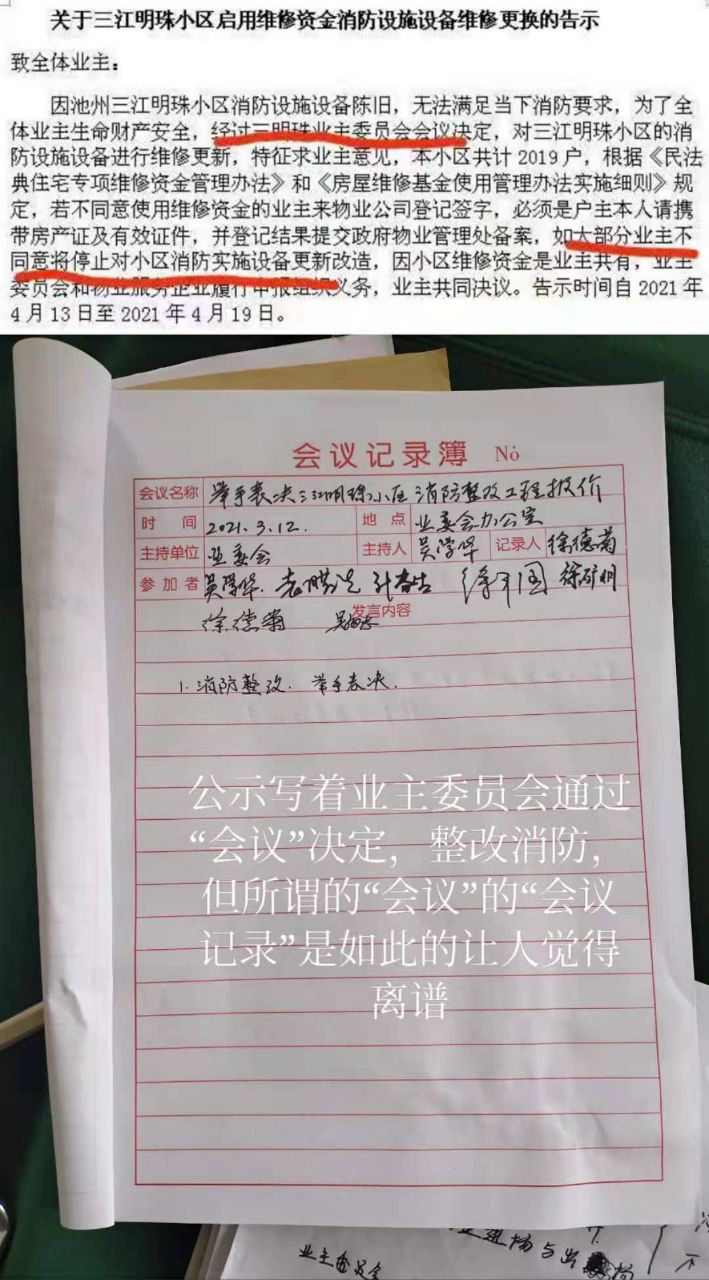 关于三江明珠小区启用维修资金消防设施设备维修更换的告示
致全体业主：
因池州三江明珠小区消防设施设备陈旧，无法满足当下消防要求，为了全
体业主生命财产安全，经过三明珠业主委员会会议决定，对三江明珠小区的消
防设施设备进行维修更新，特征求业主意见，本小区共计 2019 户，根据《民法
典住宅专项维修资金管理办法》和《房屋维修基金使用管理办法实施细则》规
定，若不同意使用维修资金的业主来物业公司登记签字，必须是户主本人请携
带房产证及有效证件，并登记结果提交政府物业管理处备案，如大部分业主不
同意将停止对小区消防实施设备更新改造，因小区维修资金是业主共有，业主
委员会和物业服务企业履行申报组织义务，业主共同决议。告示时间自 2021 年
4 月 13 日至 2021 年 4 月 19 日。
会议记录簿 No
会议名称 举手表决三江明珠小区消防整改工程报价
时 间 2021.3.12. 地 点 业委会办公室
主持单位 业委会 主持人 吴学华 记录人 徐德菊
参加者 吴学华 徐矿明
发言内容
徐德菊
1. 消防整改. 举手表决.
公示写着业主委员会通过
“会议”决定，整改消防，
但所谓的“会议”的“会议
记录”是如此的让人觉得
离谱
业主委员会